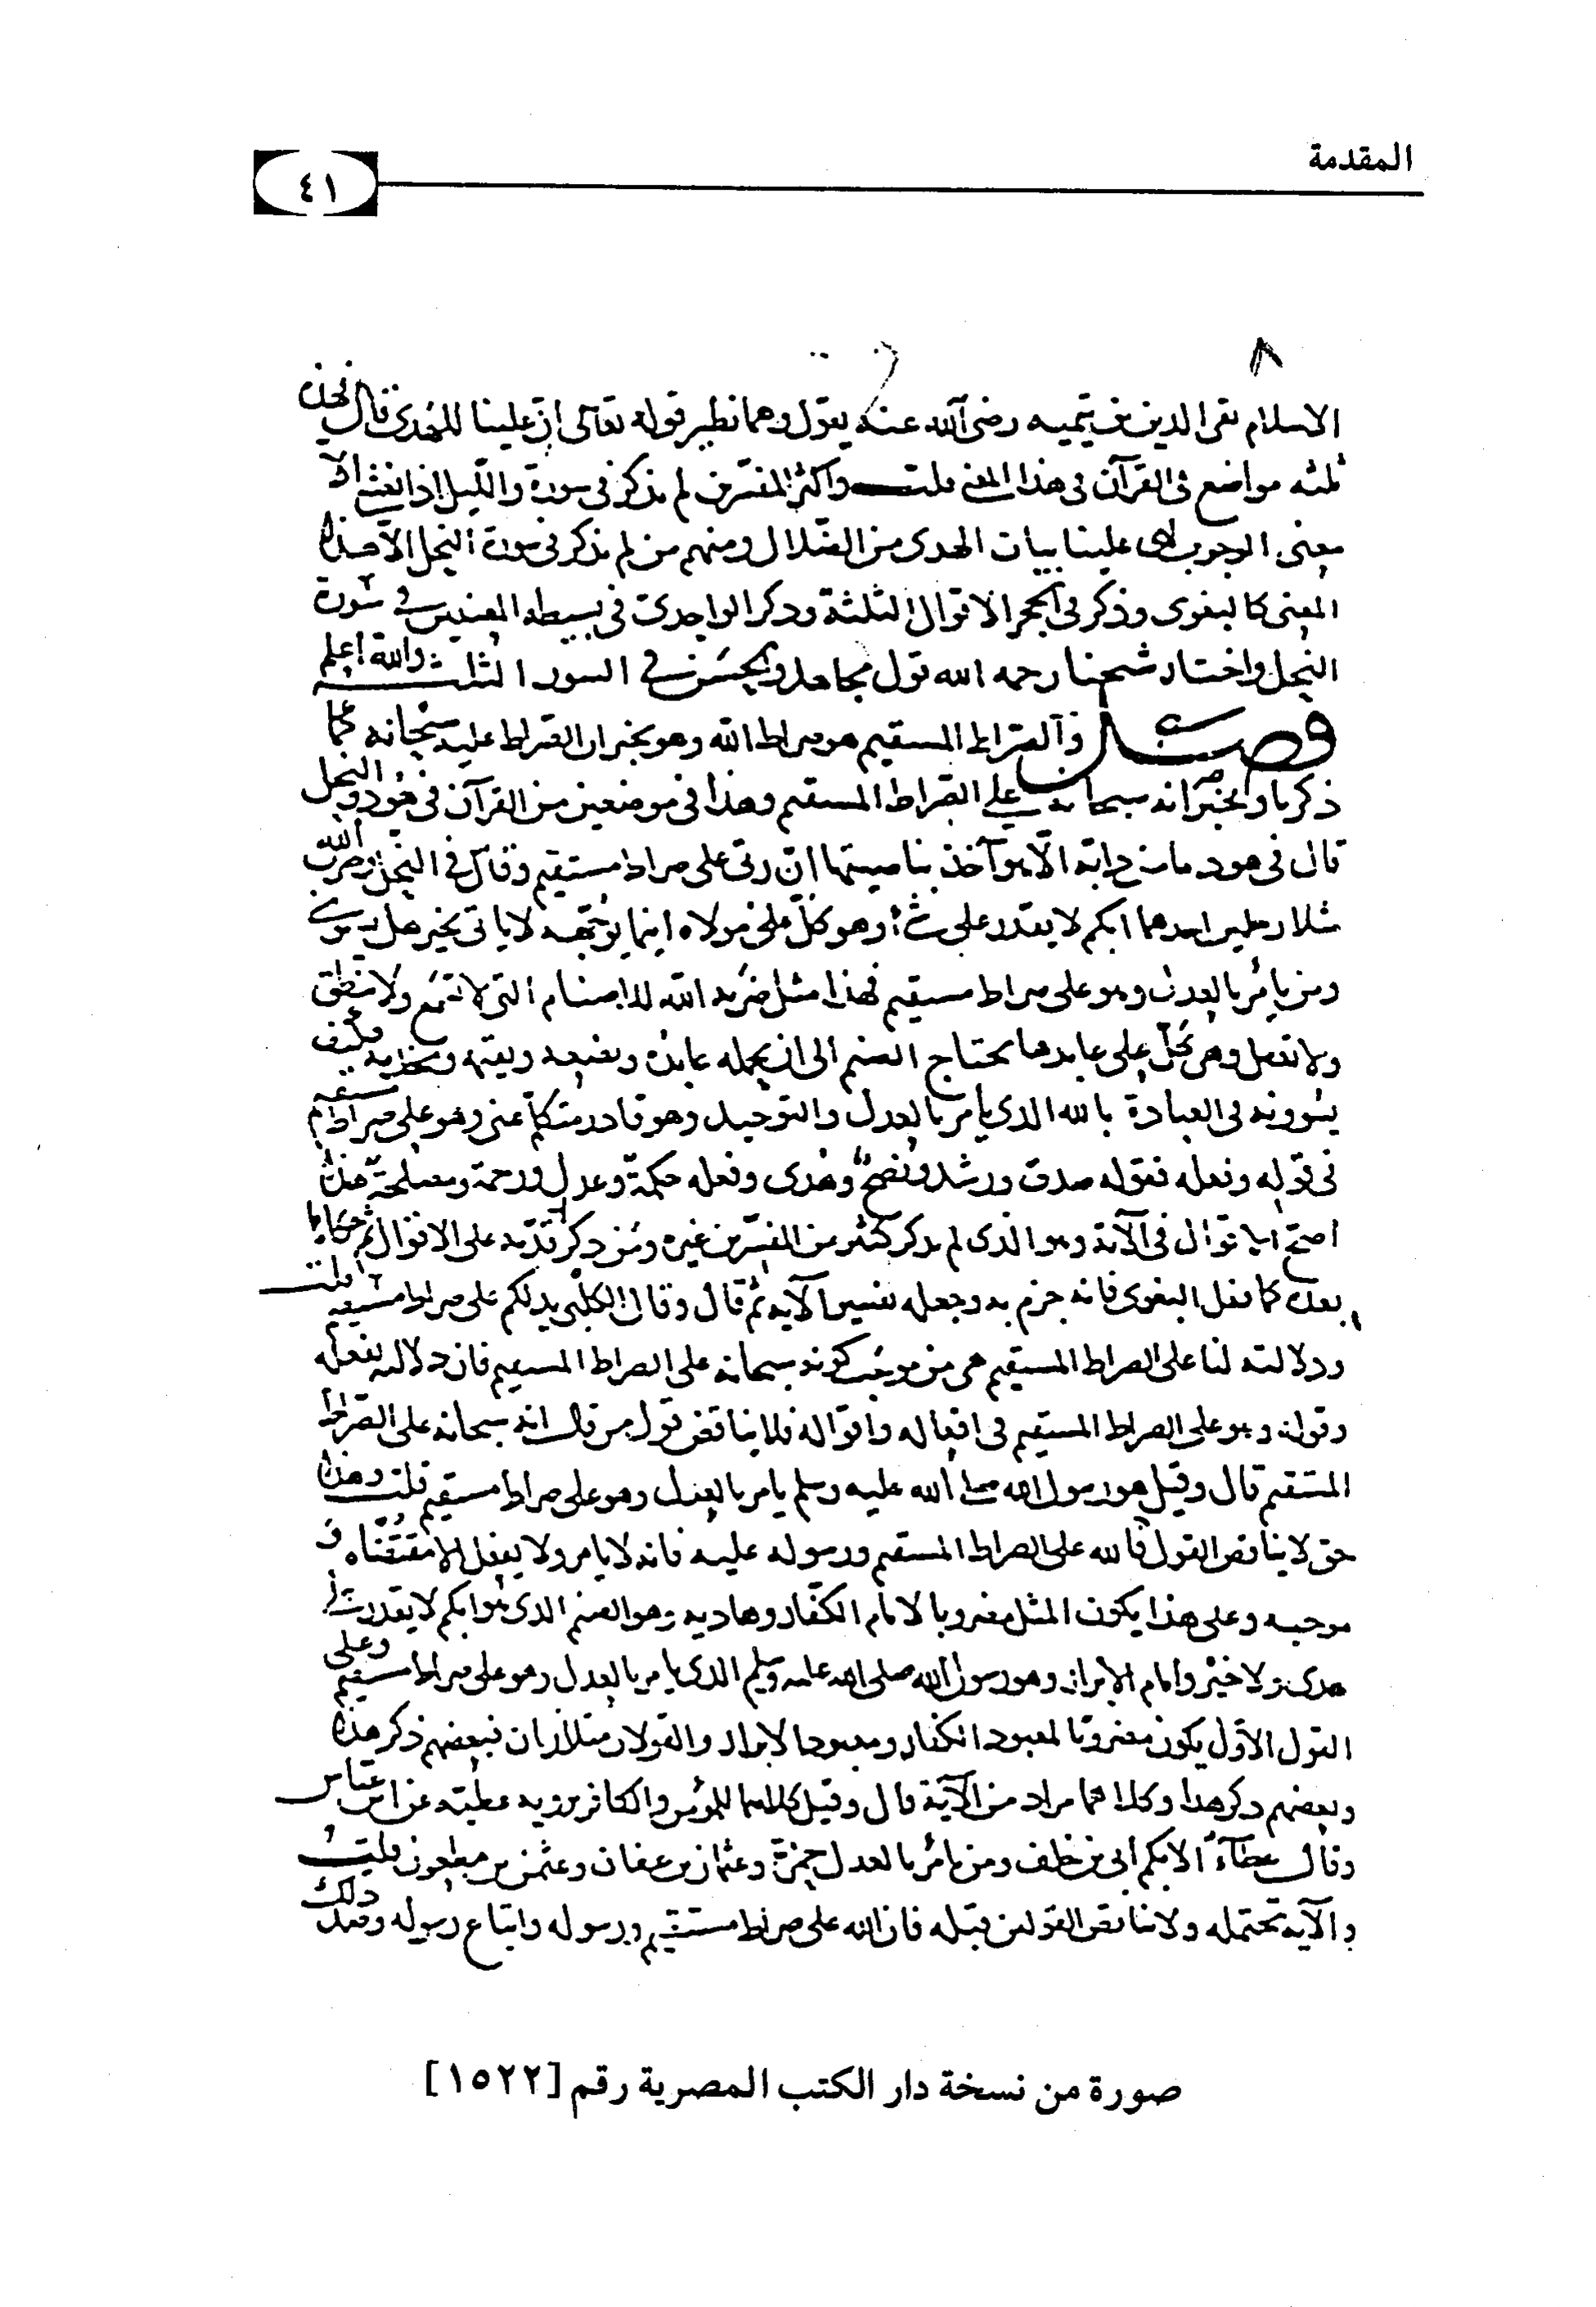 المقدمة
٤١
٨
الاسلام تقي الدين بن تيمية رضي الله عنه يقول وهما نظير قوله تعالى ان علينا للهدى قال فهذه
ثلثه مواضع في القرآن في هذا المعنى قلت واكثر المفسرين لم يذكر في سورة والليل اذا يغشى الا
معنى الوجوب اي علينا بيان الهدى من الضلال ومنهم من لم يذكر في سورة النحل الا هذا
المعنى كالبغوي وذكر في الحجر الاقوال الثلثة وذكر الواحدي في بسيطه المعنيين في سورة
النحل واختار شيخنا رحمه الله قول مجاهد والحسن في السور الثلث والله اعلم
فصل والصراط المستقيم هو صراط الله وهو يخبر ان الصراط عليه سبحانه كما
ذكرنا ويخبر انه سبحانه على الصراط المستقيم وهذا في موضعين من القرآن في هود والنحل
قال في هود ما من دابة الا هو آخذ بناصيتها ان ربي على صراط مستقيم وقال في النحل وضرب الله
مثلا رجلين احدهما ابكم لا يقدر على شئ وهو كل على مولاه اينما يوجهه لا يأتي بخير هل يستوي هو
ومن يأمر بالعدل وهو على صراط مستقيم فهذا مثل ضربه الله للاصنام التي لا تسمع ولا تنطق
ولا تعقل وهي كل على عابدها يحتاج الصنم الى ان يحمله عابده ويضعه ويقيمه ويخدمه فكيف
يسوونه في العبادة بالله الذي يأمر بالعدل والتوحيد وهو قادر متكلم غني وهو على صراط مستقيم
في قوله وفعله فقوله صدق ورشد ونصح وهدى وفعله حكمة وعدل ورحمة ومصلحة هذا
اصح الاقوال في الآية وهو الذي لم يذكر كثير من المفسرين غيره ومن ذكر قدمه على الاقوال ثم حكاها
بعده كما فعل البغوي فانه جزم به وجعله تفسير الآية ثم قال وقال الكلبي يدلكم على صراط مستقيم قلت
ودلالته لنا على الصراط المستقيم هي من موجب كونه سبحانه على الصراط المستقيم فان دلالته بفعله
وقوله وهو على الصراط المستقيم في افعاله واقواله فلا يناقض قول من قال انه سبحانه على الصراط
المستقيم قال وقيل هو رسول الله صلى الله عليه وسلم يأمر بالعدل وهو على صراط مستقيم قلت وهذا
حق لا يناقض القول فالله على الصراط المستقيم ورسوله عليه فانه لا يامر ولا يفعل الا مقتضاه و
موجبه وعلى هذا يكون المثل مضروبا لامام الكفار وهاديهم وهو الصنم الذي هو ابكم لا يقدر على
هدى ولا خير وامام الابرار وهو رسول الله صلى الله عليه وسلم الذي يامر بالعدل وهو على صراط مستقيم وعلى
القول الاول يكون مضروبا لمعبود الكفار ومعبود الابرار والقولان متلازمان فبعضهم ذكر هذا
وبعضهم ذكر هذا وكلاهما مراد من الآية قال وقيل كلاهما للمؤمن والكافر يرويه عطية عن ابن عباس
وقال عطاء الابكم ابي بن خلف ومن يأمر بالعدل حمزة وعثمان بن عفان وعثمن بن مظعون قلت
والآية تحتمله ولا يناقض القولين قبله فان الله على صراط مستقيم ورسوله واتباع رسوله وضد ذلك
صورة من نسخة دار الكتب المصرية رقم [١٥٢٢]